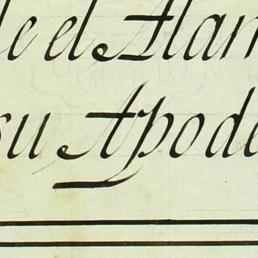 le el Alam
su Apode